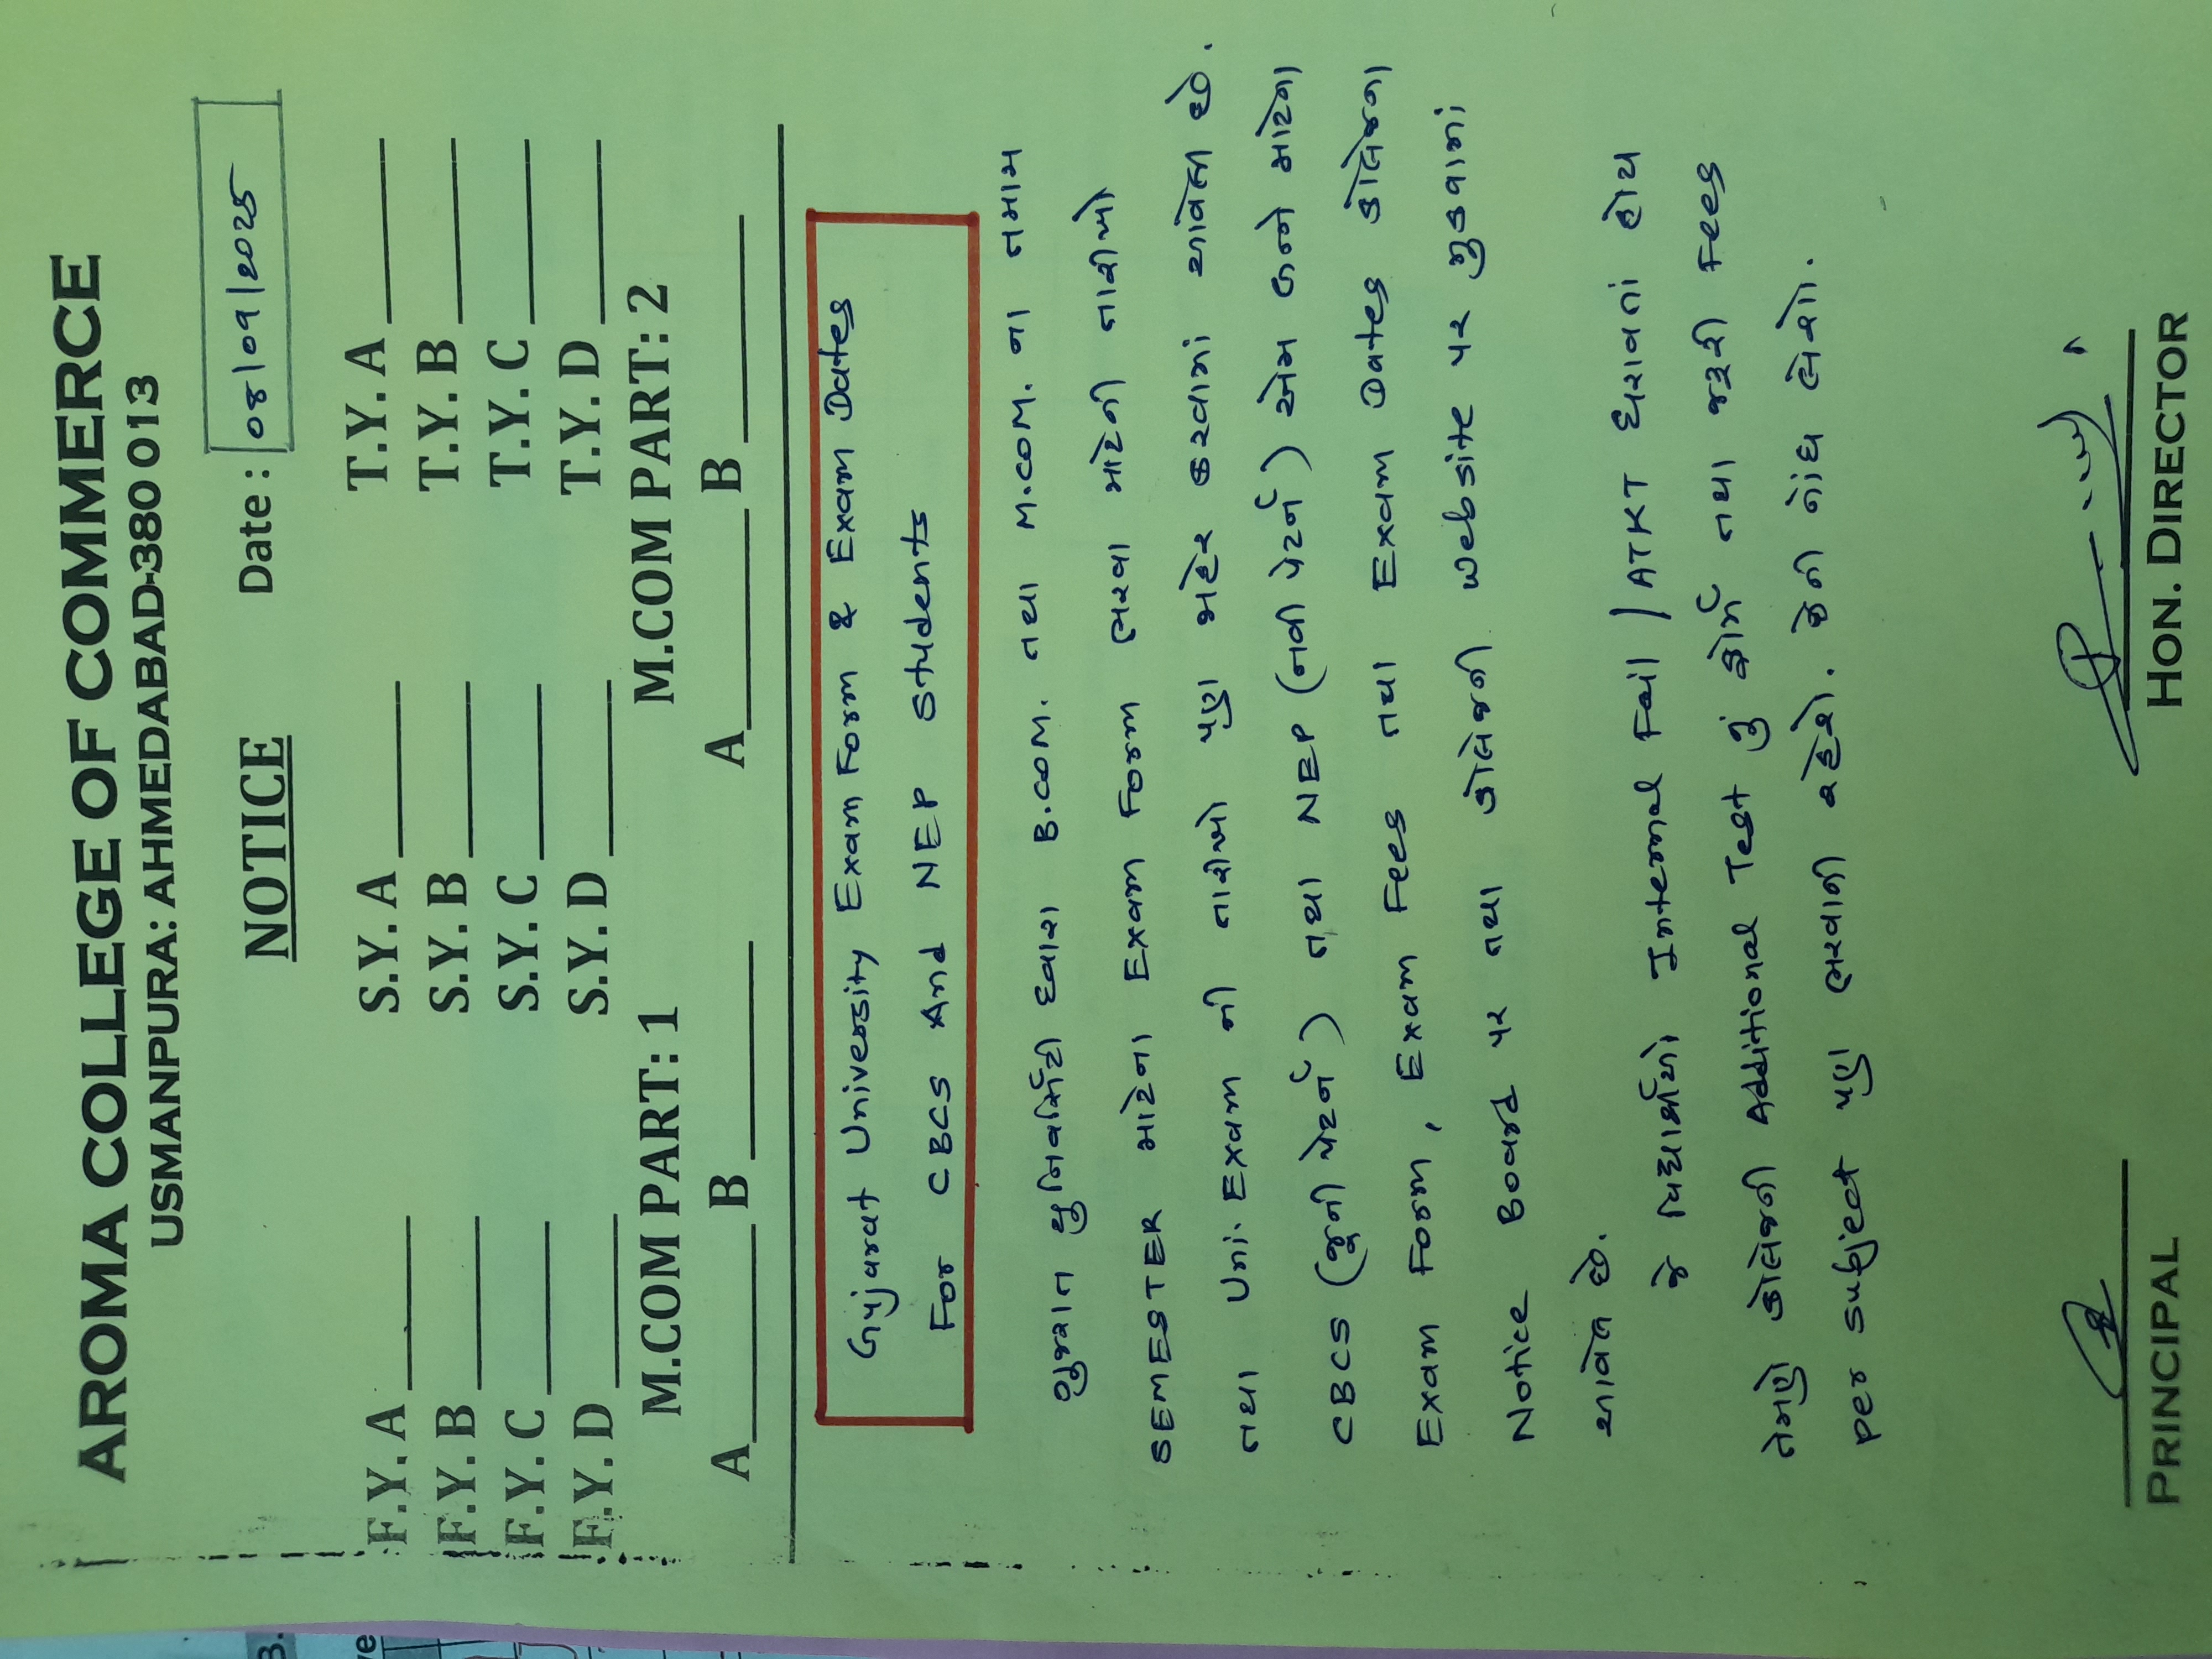 AROMA COLLEGE OF COMMERCE
USMANPURA: AHMEDABAD-380 013
NOTICE Date: 08/09/2025
F.Y. A S.Y. A T.Y. A
F.Y. B S.Y. B T.Y. B
F.Y. C S.Y. C T.Y. C
F.Y. D S.Y. D T.Y. D
M.COM PART: 1 M.COM PART: 2
A B A B
Gujarat University Exam Form & Exam Dates
For CBCS And NEP Students
ગુજરાત યુનિવર્સિટી દ્વારા B.COM. તથા M.COM. ના તમામ
SEMESTER માટેના Exam Form ભરવા માટેની તારીખો
તથા Uni. Exam ની તારીખો પણ જાહેર કરવામાં આવેલા છે.
CBCS (જૂની પેટર્ન) તથા NEP (નવી પેટર્ન) એમ બન્ને માટેના
Exam Form, Exam Fees તથા Exam Dates કોલેજના
Notice Board પર તથા કોલેજની website પર મુકવામાં
આવેલ છે.
જે વિદ્યાર્થીઓ Internal Fail / ATKT ધરાવતાં હોય
તેમણે કોલેજની Additional Test નું ફોર્મ તથા જરૂરી Fees
per subject પણ ભરવાની રહેશે. જેની નોંધ લેશો.
PRINCIPAL HON. DIRECTOR